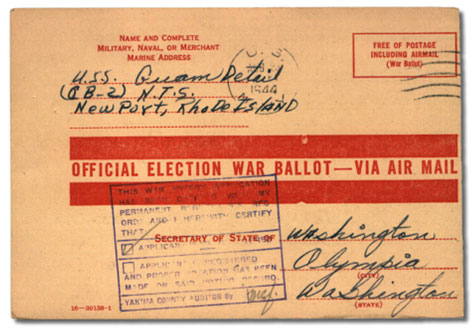 NAME AND COMPLETE
MILITARY, NAVAL, OR MERCHANT
MARINE ADDRESS
FREE OF POSTAGE
INCLUDING AIRMAIL
(War Ballot)
U.S.
1944
U.S.S. Guam Detail
(CB-2) N.T.S.
Newport, Rhode Island
OFFICIAL ELECTION WAR BALLOT—VIA AIR MAIL
THIS WAR
HAS
PERMANENT
ORDS AND I HEREWITH CERTIFY
THAT
SECRETARY OF STATE OF Washington
APPLICANT
APPLICANT
REGISTERED
AND PROPER NOTATION HAS BEEN
MADE ON SAID VOTING RECORD.
Olympia
(CITY)
YAKIMA COUNTY AUDITOR By
Washington
(STATE)
16—39138-1